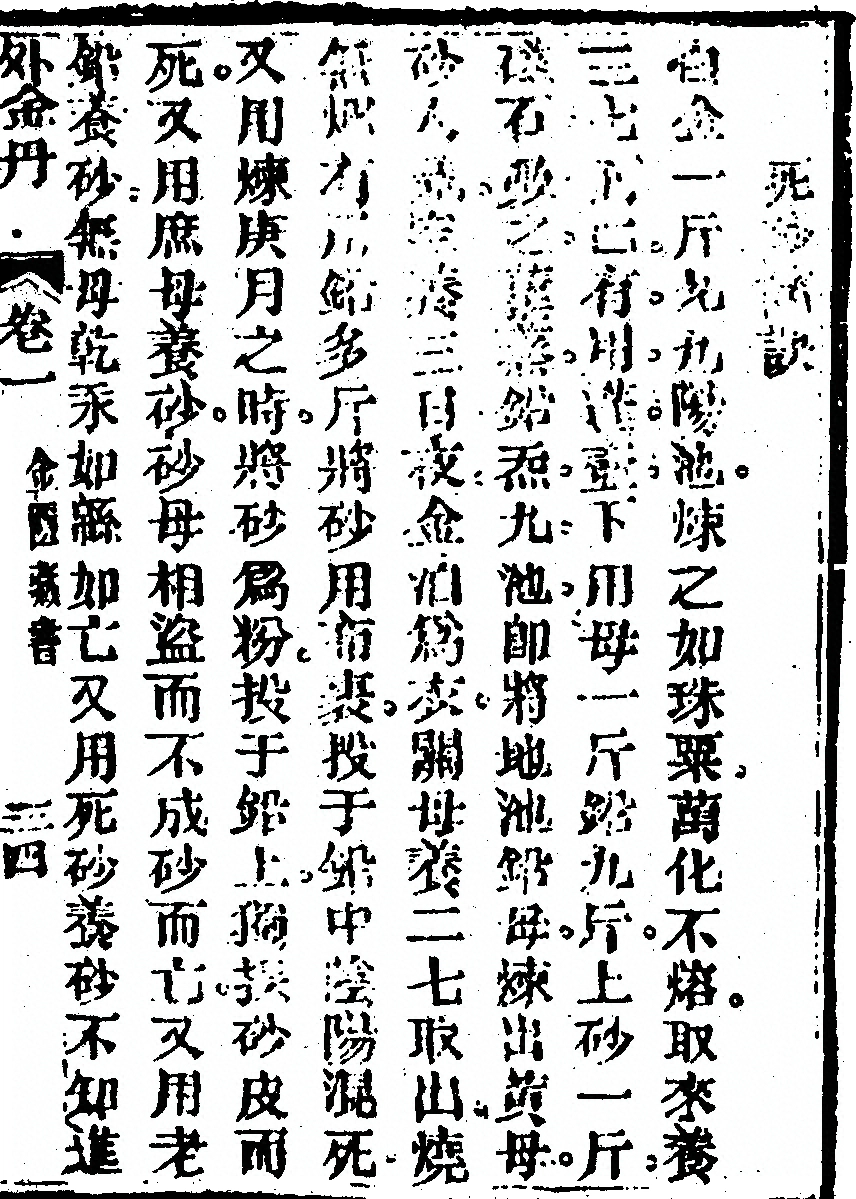 死砂□訣
白金一斤先九陽池煉之如珠粟菌化不熔取來養
三七 用 下用母一斤鉛九斤上砂一斤
石 之 鉛炁九池卽將地池鉛母煉出黃母
砂入 三日夜金泊爲衣關母養二七取出燒
有用鉛多斤將砂用布裹投于鉛中陰陽混死
又用煉庚月之時將砂爲粉投于鉛上獨損砂皮而
死又用庶母養砂砂母相盜而不成砂而亡又用老
鉛養砂無母乾汞如綿如亡又用死砂養砂不知進
外金丹
卷一
金匱藏書
三四